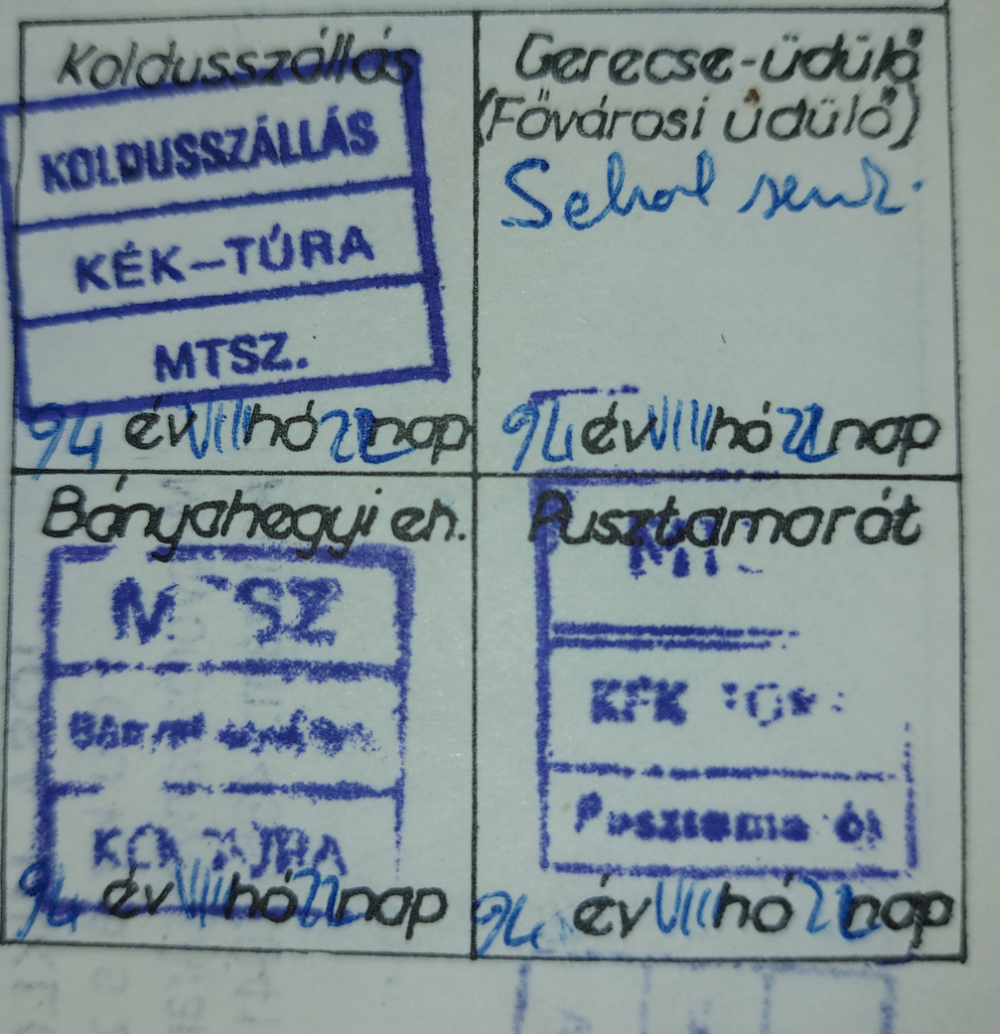 Koldusszállás
KOLDUSSZÁLLÁS
KÉK-TÚRA
MTSZ.
94 év VIII hó 22 nap
Gerecse-üdülő
(Fővárosi üdülő)
Sehol senki.
94 év VIII hó 22 nap
Bányahegyi eh.
M SZ
94 év VIII hó 22 nap
Pusztamarót
94 év VIII hó 22 nap